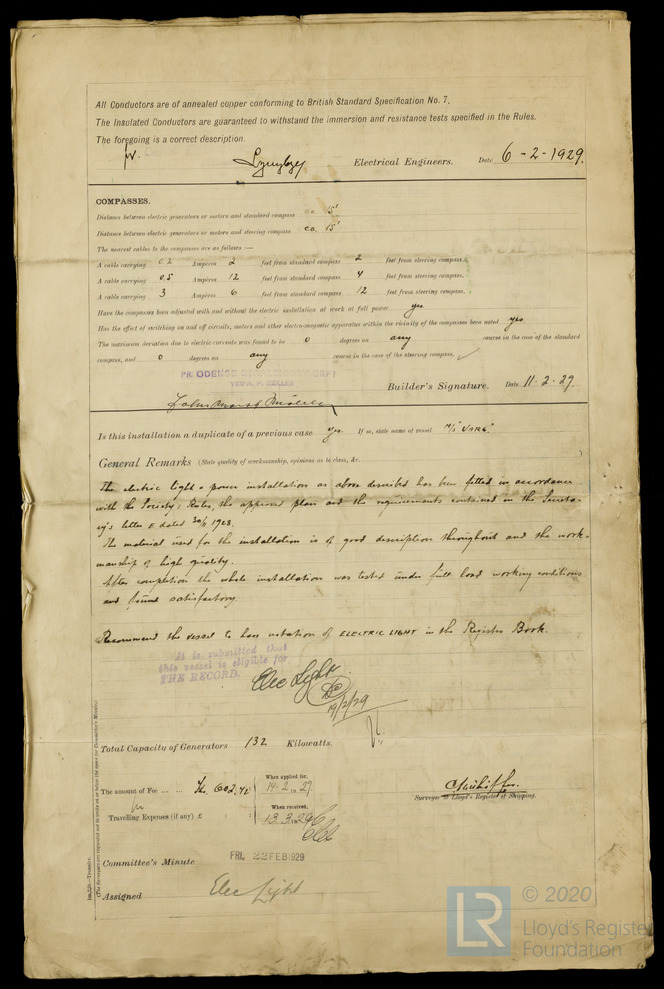 All Conductors are of annealed copper conforming to British Standard Specification No. 7.
The Insulated Conductors are guaranteed to withstand the immersion and resistance tests specified in the Rules.
The foregoing is a correct description.
Electrical Engineers. Date 6-2-1929.
COMPASSES.
Distance between electric generators or motors and standard compass ca. 15'
Distance between electric generators or motors and steering compass ca. 15'
The nearest cables to the compasses are as follows:—
A cable carrying 0.2 Ampères 2 feet from standard compass 2 feet from steering compass.
A cable carrying 0.5 Ampères 12 feet from standard compass 4 feet from steering compass.
A cable carrying 3 Ampères 6 feet from standard compass 12 feet from steering compass.
Have the compasses been adjusted with and without the electric installation at work at full power yes.
Has the effect of switching on and off circuits, motors and other electro-magnetic apparatus within the vicinity of the compasses been noted yes.
The maximum deviation due to electric currents was found to be 0 degrees on any course in the case of the standard
compass, and 0 degrees on any course in the case of the steering compass.
ODENSE
VED A. P. MØLLER
Builder's Signature. Date 11.2.29
Is this installation a duplicate of a previous case yes. If so, state name of vessel M/S "VARG."
General Remarks (State quality of workmanship, opinions as to class, &c.)
The electric light & power installation as above described has been fitted in accordance
with the Society's Rules, the approved plan and the requirements contained in the Secreta-
ry's letter E dated 1928.
The material used for the installation is of good description throughout and the work-
manship of high quality.
After completion the whole installation was tested under full load working conditions
and found satisfactory.
Recommend the vessel to have notation of ELECTRIC LIGHT in the Register Book.
It is submitted that
this vessel is eligible for
THE RECORD.
Elec Light
19/2/29
Total Capacity of Generators 132 Kilowatts.
The amount of Fee ... ... Kr. 602,42
When applied for, 14.2.1929.
Travelling Expenses (if any) £
When received, 13.3.1929
Surveyor to Lloyd's Register of Shipping.
Committee's Minute FRI. 22 FEB 1929
Assigned Elec Light
Transfer.
(The Surveyors are requested not to write on or below the space for Committee's Minute.)
LR © 2020
Lloyd's Register
Foundation